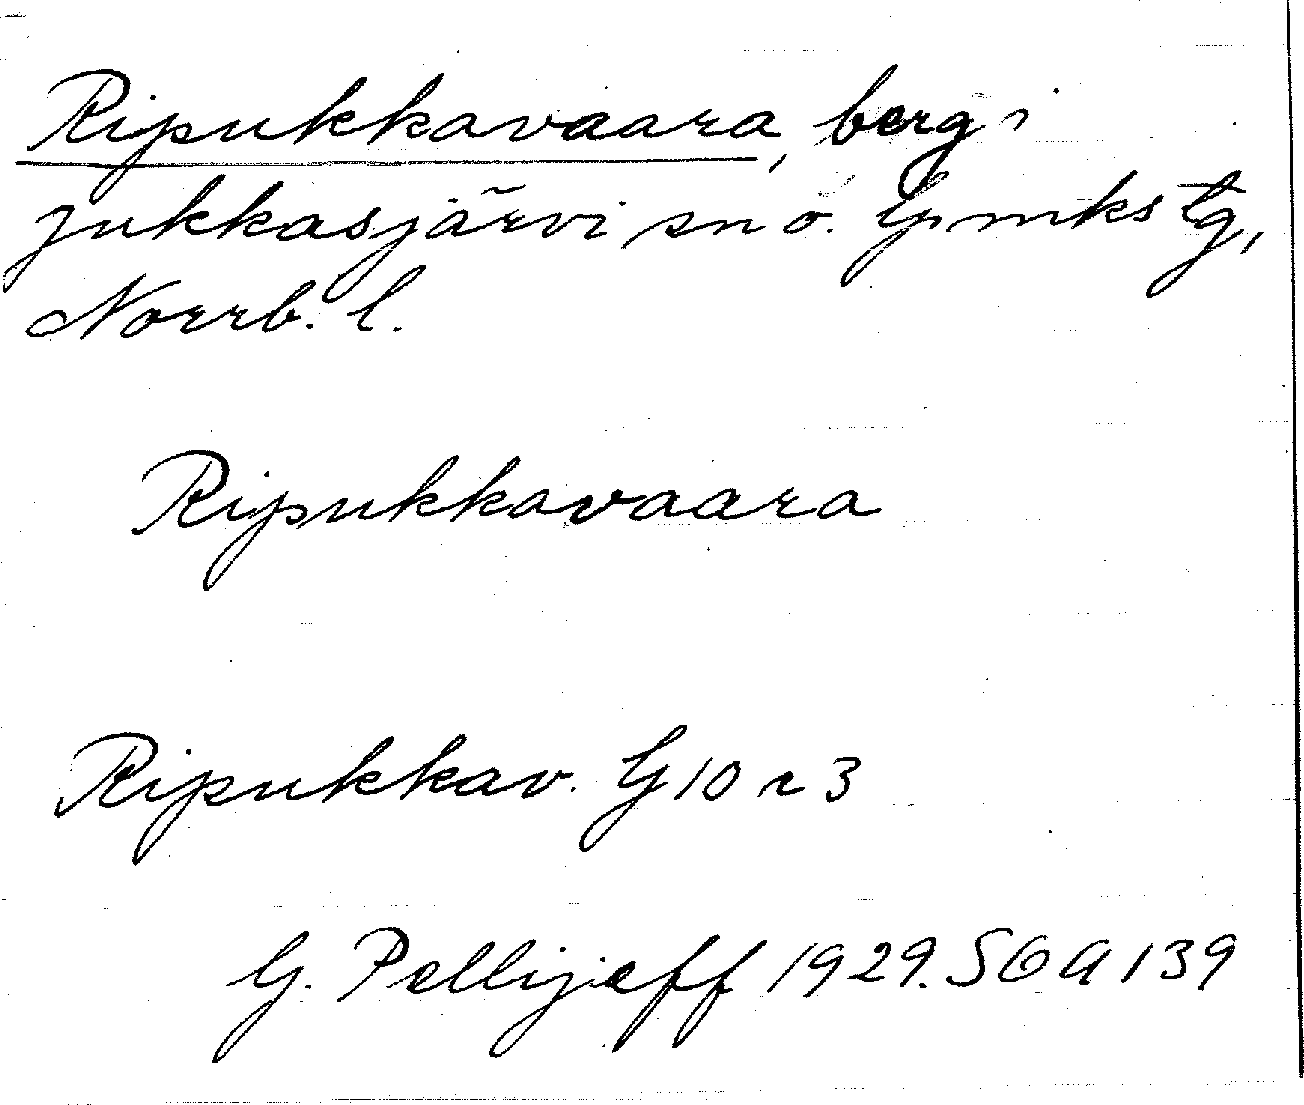 Ripukkavaara, berg i
Jukkasjärvi sn o. G:mks tg,
Norrb. l.
Ripukkavaara
Ripukkav. G 10 r 3
G. Pellijeff 1929. SOA 139